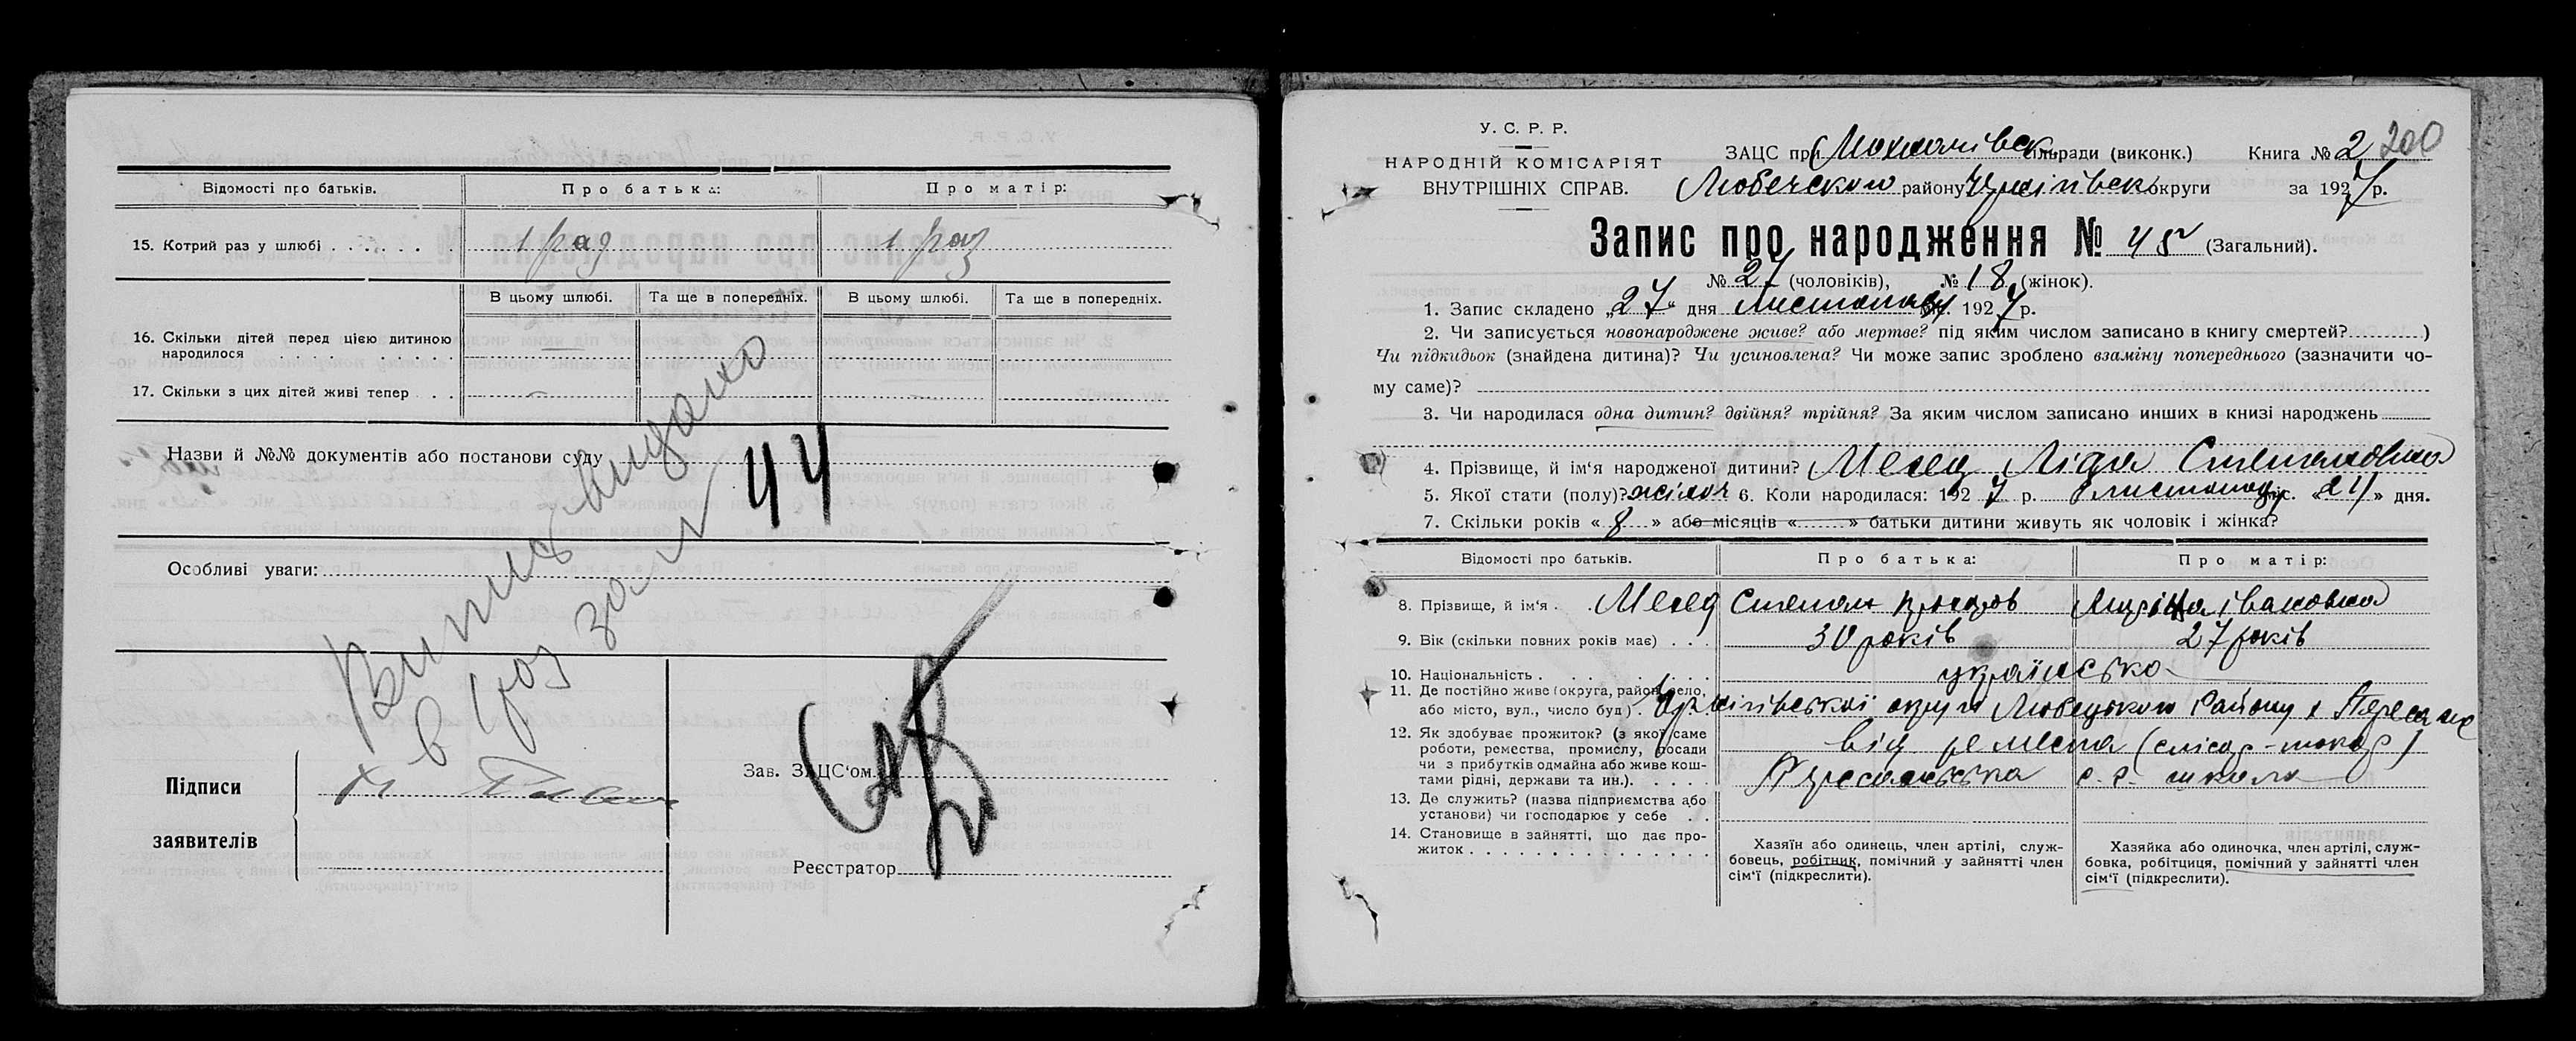 Відомості про батьків.
Про батька:
Про матір:
15. Котрий раз у шлюбі
1 раз
1 раз
В цьому шлюбі.
Та ще в попередніх.
В цьому шлюбі.
Та ще в попередніх.
16. Скільки дітей перед цією дитиною
народилося
17. Скільки з цих дітей живі тепер
Назви й №№ документів або постанови суду
44
Особливі уваги:
Підписи
заявителів
Зав. ЗАЦС'ом
Реєстратор
У. С. Р. Р.
НАРОДНІЙ КОМІСАРІЯТ
ВНУТРІШНІХ СПРАВ.
ЗАЦС при сільради (виконк.) Книга № 2 200
Любечского району Чернігівск округи за 1927 р.
Запис про народження № 45 (Загальний).
№ 27 (чоловіків), № 18 (жінок).
1. Запис складено „27" дня Листопада 1927 р.
2. Чи записується новонароджене живе? або мертве? під яким числом записано в книгу смертей? )
Чи підкидьок (знайдена дитина)? Чи усиновлена? Чи може запис зроблено взаміну попереднього (зазначити чо-
му саме)?
3. Чи народилася одна дитин? двійня? трійня? За яким числом записано инших в книзі народжень
4. Прізвище, й ім'я народженої дитини? Ліда Степановна
5. Якої стати (полу)? жіноч 6. Коли народилася: 1927 р. листопад міс. «24» дня.
7. Скільки років «8» або місяців « » батьки дитини живуть як чоловік і жінка?
Відомості про батьків.
Про батька:
Про матір:
8. Прізвище, й ім'я . Степан Івановна
9. Вік (скільки повних років має) 30 років 27 років
10. Національність українська
11. Де постійно живе (округа, район, село,
або місто, вул., число буд.). Чернігівської округи Любецького Району х
12. Як здобуває прожиток? (з якої саме
роботи, ремества, промислу, посади
чи з прибутків одмайна або живе кош-
тами рідні, держави та ин.).
від ремесла (слісар-токар)
школа
13. Де служить? (назва підприємства або
установи) чи господарює у себе
14. Становище в зайнятті, що дає про-
житок
Хазяїн або одинець, член артілі, служ-
бовець, робітник, помічний у зайнятті член
сім'ї (підкреслити).
Хазяйка або одиночка, член артілі, служ-
бовка, робітниця, помічний у зайнятті член
сім'ї (підкреслити).